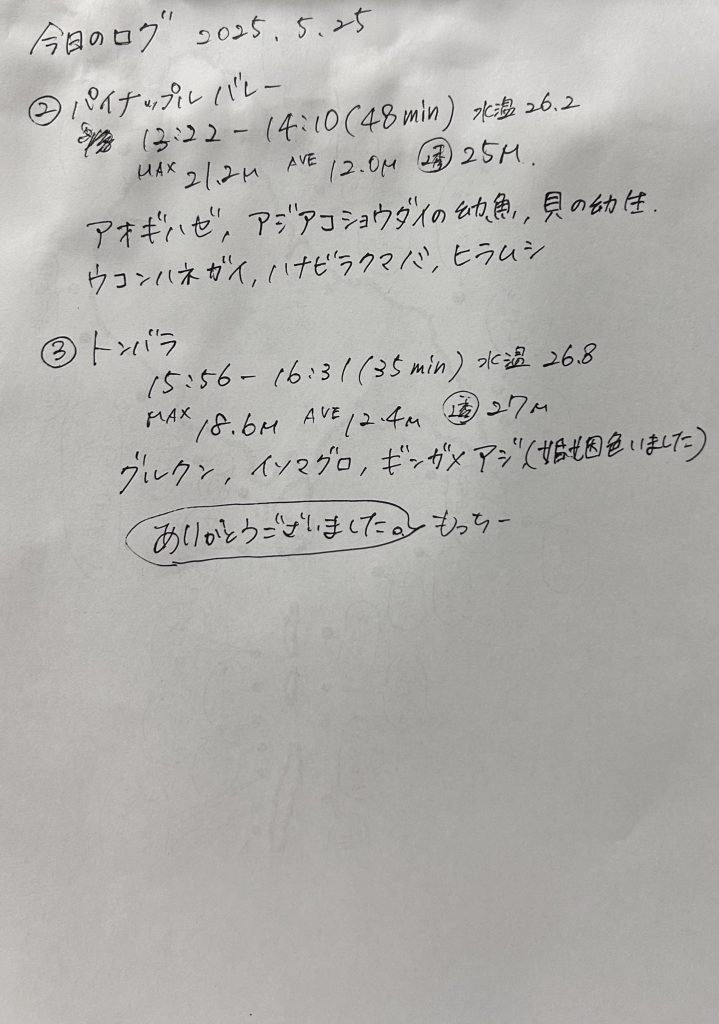 今日のログ 2025.5.25
② パイナップルバレー
13:22 - 14:10(48min) 水温 26.2
MAX 21.2M AVE 12.0M 透 25M.
アオギハゼ, アジアコショウダイの幼魚, 貝の幼生.
ウコンハネガイ, ハナビラクマノミ, ヒラムシ
③ トンバラ
15:56 - 16:31(35min) 水温 26.8
MAX 18.6M AVE 12.4M 透 27M
グルクン, イソマグロ, ギンガメアジ(婚姻色いました)
ありがとうございました。 もっちー